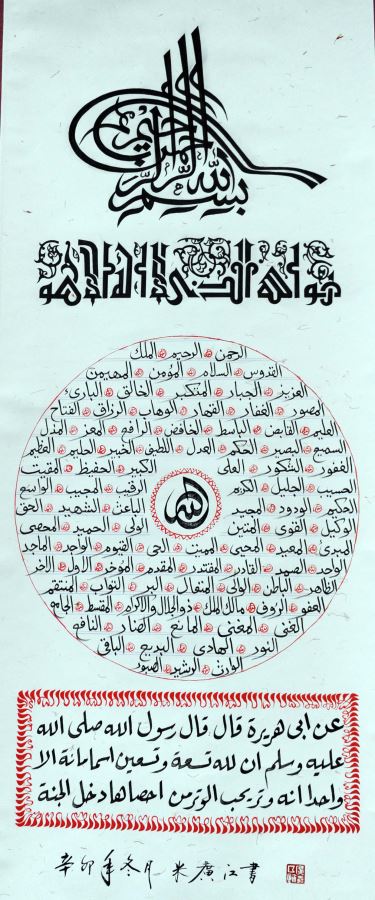 بسم الله الرحمن الرحيم
هو الله الذي لا اله الا هو
الرحمن الرحيم الملك
القدوس السلام المؤمن المهيمن
العزيز الجبار المتكبر الخالق البارئ
المصور الغفار القهار الوهاب الرزاق الفتاح
العليم القابض الباسط الخافض الرافع المعز المذل
السميع البصير الحكم العدل اللطيف الخبير الحليم العظيم
الغفور الشكور العلي الكبير الحفيظ المقيت
الحسيب الجليل الكريم الرقيب المجيب الواسع
الحكيم الودود المجيد الباعث الشهيد الحق
الوكيل القوى المتين الولى الحميد المحصى
المبدئ المعيد المحيى المميت الحى القيوم الواجد الماجد
الله
الواحد الصمد القادر المقتدر المقدم المؤخر الاول الاخر
الظاهر الباطن الوالى المتعال البر التواب المنتقم
العفو الرؤف مالك الملك ذوالجلال والاكرام المقسط الجامع
الغنى المغنى المانع الضار النافع
النور الهادى البديع الباقى
الوارث الرشيد الصبور
عن ابى هريرة قال قال رسول الله صلى الله
عليه وسلم ان لله تسعة وتسعين اسما مائة الا
واحدا انه وتر يحب الوتر من احصاها دخل الجنة
辛卯年冬月 米廣江書